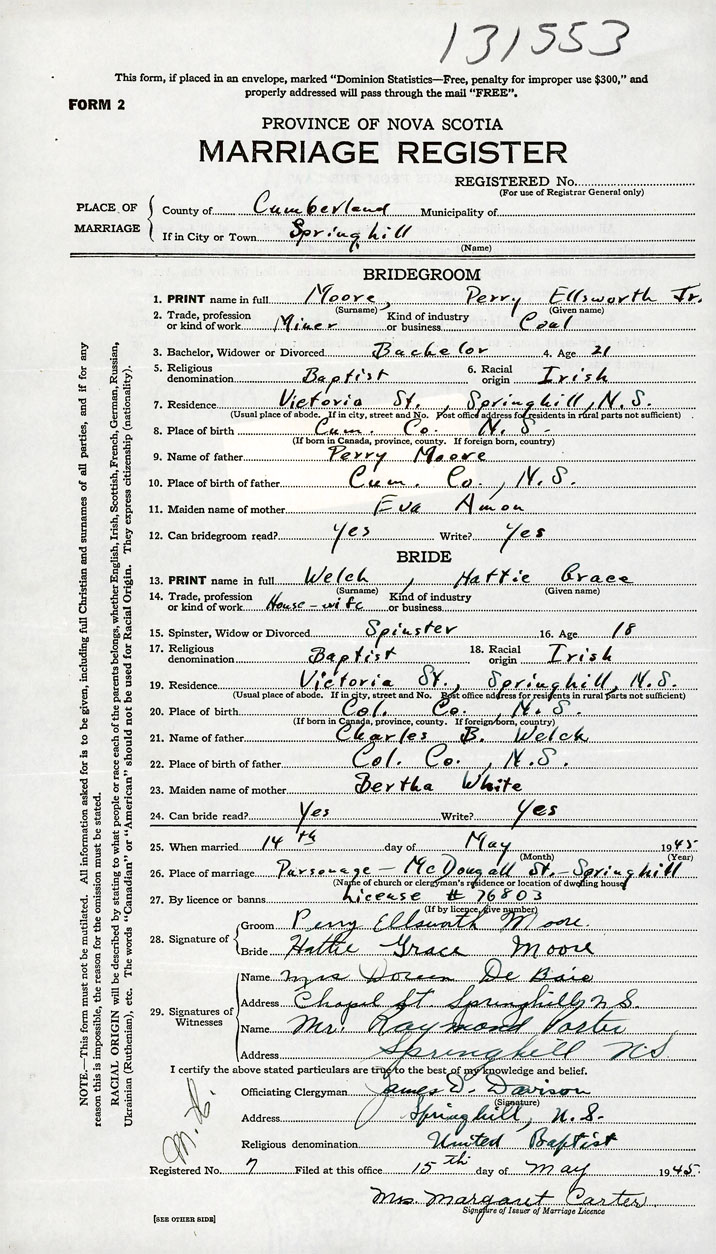 131553
This form, if placed in an envelope, marked "Dominion Statistics—Free, penalty for improper use $300," and
properly addressed will pass through the mail "FREE".
FORM 2
PROVINCE OF NOVA SCOTIA
MARRIAGE REGISTER
REGISTERED No.
(For use of Registrar General only)
PLACE OF MARRIAGE
County of Cumberland Municipality of
If in City or Town Springhill
(Name)
BRIDEGROOM
1. PRINT name in full Moore, Perry Ellsworth Jr.
(Surname) (Given name)
2. Trade, profession or kind of work Miner Kind of industry or business Coal
3. Bachelor, Widower or Divorced Bachelor 4. Age 21
5. Religious denomination Baptist 6. Racial origin Irish
7. Residence Victoria St., Springhill, N.S.
(Usual place of abode. If in city, street and No. Post office address for residents in rural parts not sufficient)
8. Place of birth Cum. Co. N.S.
(If born in Canada, province, county. If foreign born, country)
9. Name of father Perry Moore
10. Place of birth of father Cum. Co., N.S.
11. Maiden name of mother Eva Amon
12. Can bridegroom read? Yes Write? Yes
BRIDE
13. PRINT name in full Welch, Hattie Grace
(Surname) (Given name)
14. Trade, profession or kind of work House-wife Kind of industry or business
15. Spinster, Widow or Divorced Spinster 16. Age 18
17. Religious denomination Baptist 18. Racial origin Irish
19. Residence Victoria St., Springhill, N.S.
(Usual place of abode. If in city, street and No. Post office address for residents in rural parts not sufficient)
20. Place of birth Col. Co., N.S.
(If born in Canada, province, county. If foreign born, country)
21. Name of father Charles B. Welch
22. Place of birth of father Col. Co., N.S.
23. Maiden name of mother Bertha White
24. Can bride read? Yes Write? Yes
25. When married 14th day of May 1945
(Month) (Year)
26. Place of marriage Parsonage – McDougall St. – Springhill
(Name of church or clergyman's residence or location of dwelling house)
27. By licence or banns License # 76803
(If by licence, give number)
28. Signature of
Groom Perry Ellsworth Moore.
Bride Hattie Grace Moore
29. Signatures of Witnesses
Name Mrs Doreen De Baie
Address Chapel St. Springhill N S
Name Mr. Raymond Porter
Address Springhill NS
I certify the above stated particulars are true to the best of my knowledge and belief.
Officiating Clergyman James D. Davison
(Signature)
Address Springhill, N.S.
Religious denomination United Baptist
Registered No. 7 Filed at this office 15th day of May 1945
Mrs. Margaret Carter
Signature of Issuer of Marriage Licence
[SEE OTHER SIDE]
NOTE.—This form must not be mutilated. All information asked for is to be given, including full Christian and surnames of all parties, and if for any
reason this is impossible, the reason for the omission must be stated.
RACIAL ORIGIN will be described by stating to what people or race each of the parents belongs, whether English, Irish, Scottish, French, German, Russian,
Ukrainian (Ruthenian), etc. The words "Canadian" or "American" should not be used for Racial Origin. They express citizenship (nationality).